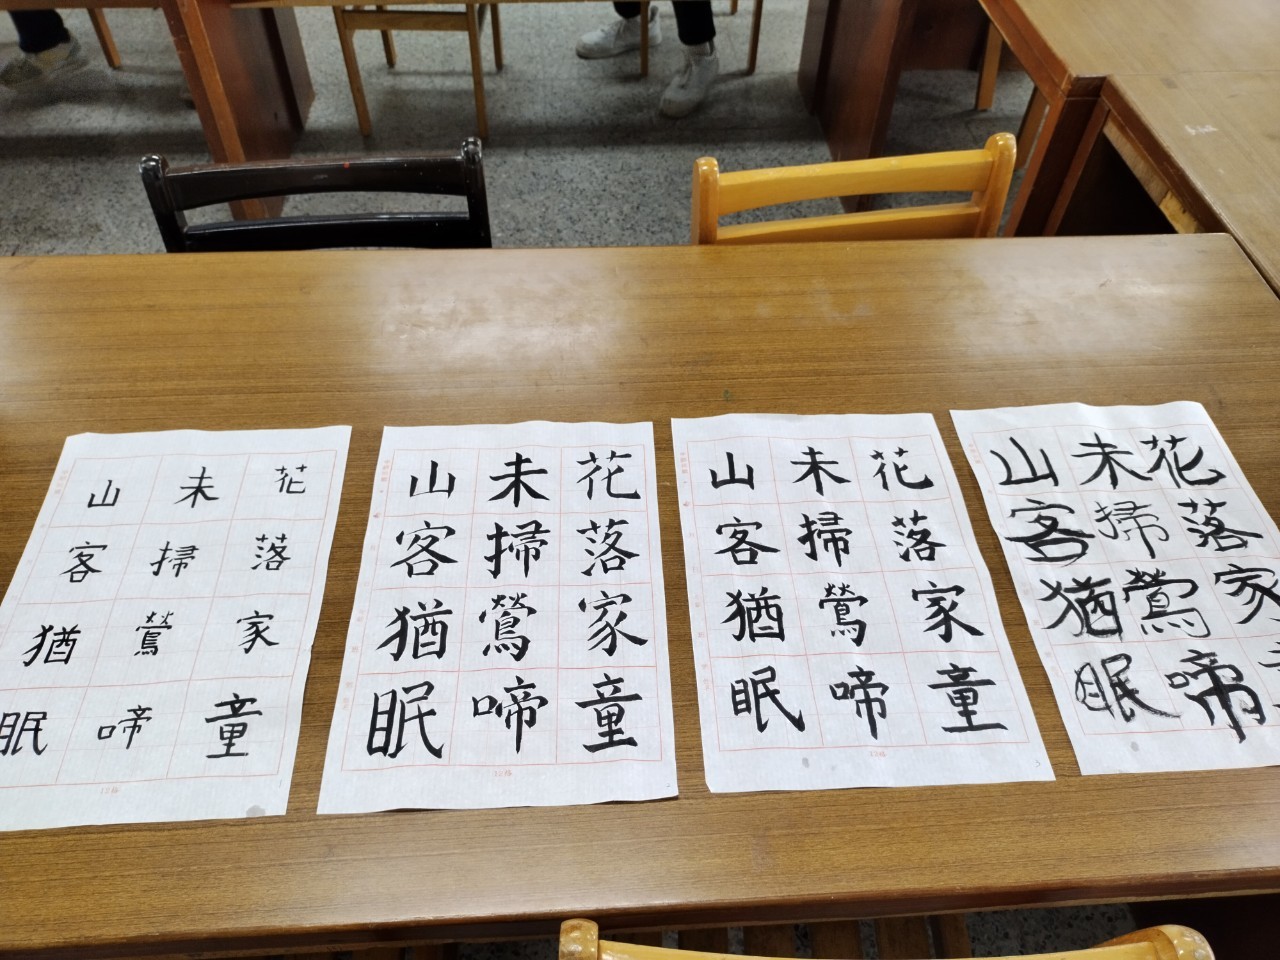 花落家童
未掃鶯啼
山客猶眠
花落家童
未掃鶯啼
山客猶眠
花落家童
未掃鶯啼
山客猶眠
花落家
未掃鶯啼
山客猶眠